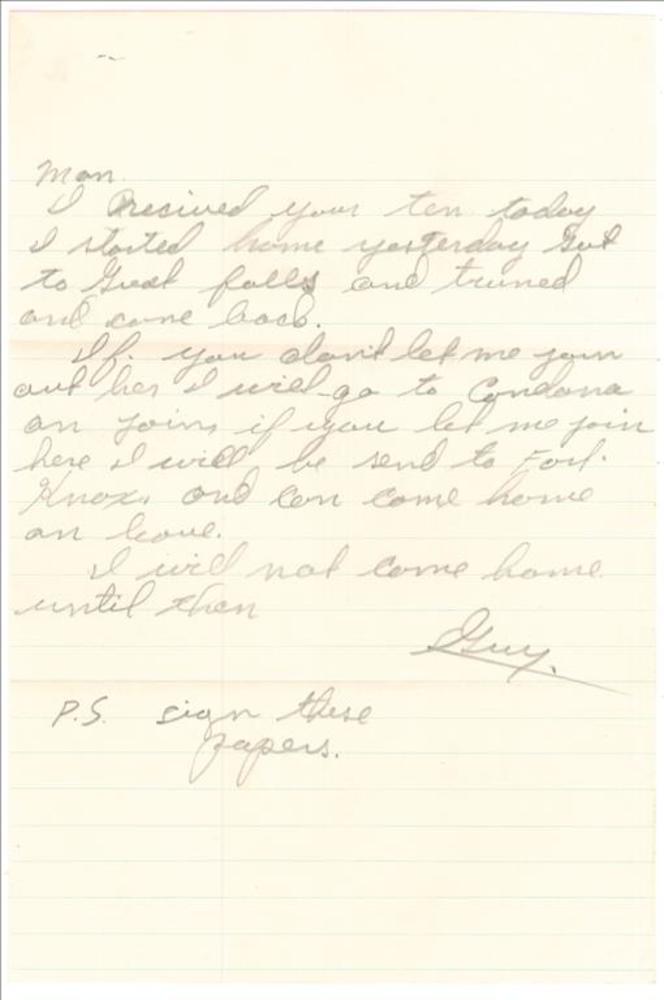 Mom
I recived your ten today
I started home yesterday Got
to Great falls and truned
and came back.
If. you don't let me join
out her I will go to Candana
an join, if you let me join
here I will be send to Fort.
Knox, and can come home
on leave.
I will not come home
until then
Guy.
P.S. sign these
papers.